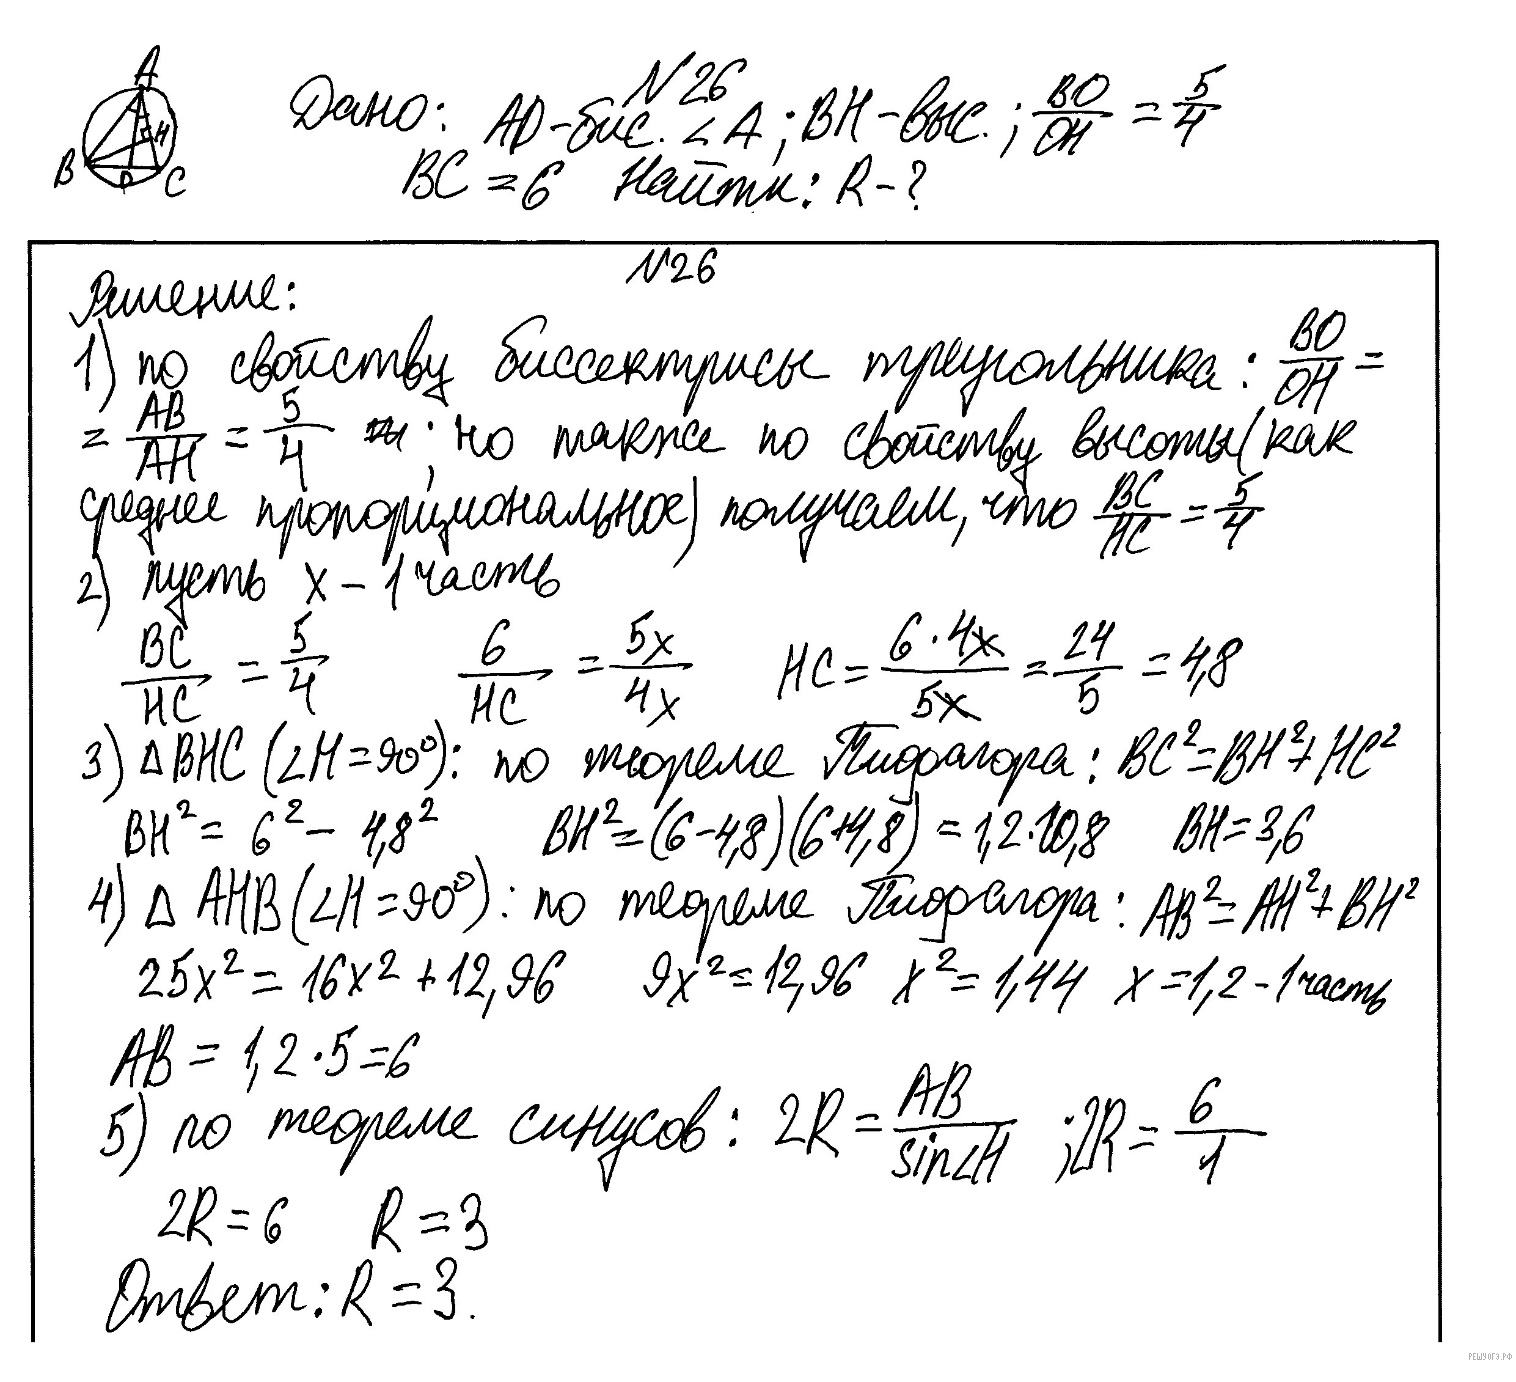 N26
Дано: AD-бис. ∠A; BH-выс.; BO/OH = 5/4
BC = 6 Найти: R-?
A
H
B
D
C
N26
Решение:
1) по свойству биссектрисы треугольника: BO/OH =
= AB/AH = 5/4 ; но также по свойству высоты (как
среднее пропорциональное) получаем, что BC/HC = 5/4
2) пусть x - 1 часть
BC/HC = 5/4 6/HC = 5x/4x HC = 6·4x/5x = 24/5 = 4,8
3) △BHC (∠H = 90°): по теореме Пифагора: BC² = BH² + HC²
BH² = 6² - 4,8² BH² = (6-4,8)(6+4,8) = 1,2·10,8 BH = 3,6
4) △ AHB (∠H = 90°): по теореме Пифагора: AB² = AH² + BH²
25x² = 16x² + 12,96 9x² = 12,96 x² = 1,44 x = 1,2 - 1 часть
AB = 1,2·5 = 6
5) по теореме синусов: 2R = AB/sin∠H ; 2R = 6/1
2R = 6 R = 3
Ответ: R = 3.
РЕШУОГЭ.РФ